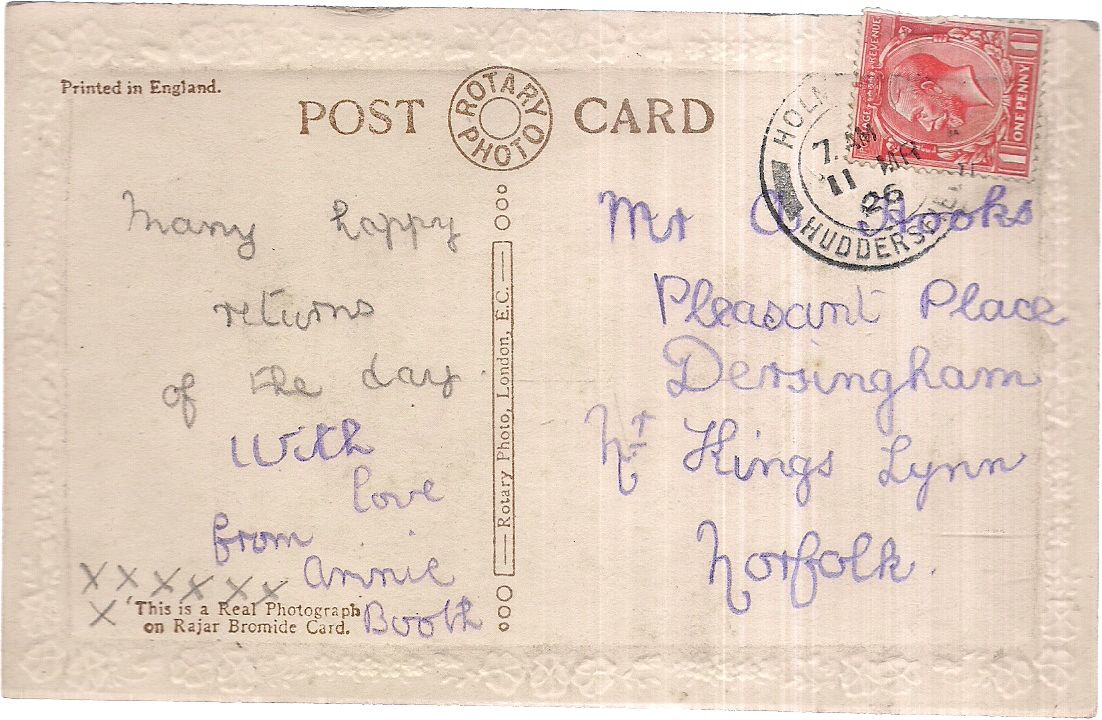 Printed in England.
POST CARD
ROTARY PHOTO
REVENUE
ONE PENNY
1 1
HOL
7. AM
11 MR
26
HUDDERSFIELD
Many happy
returns
of the day.
With
love
from
Annie
Booth
X X X X X X
X
This is a Real Photograph
on Rajar Bromide Card.
Rotary Photo, London, E.C.
Mr Hooks
Pleasant Place
Dersingham
Nr Kings Lynn
Norfolk.